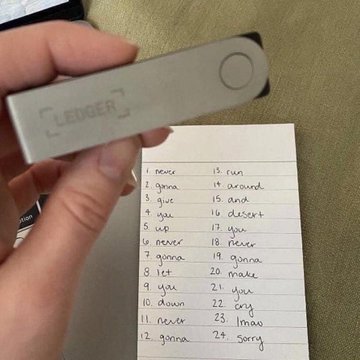 LEDGER
1. never
2. gonna
3. give
4. you
5. up
6. never
7. gonna
8. let
9. you
10. down
11. never
12. gonna
13. run
14. around
15. and
16. desert
17. you
18. never
19. gonna
20. make
21. you
22. cry
23. lmao
24. sorry